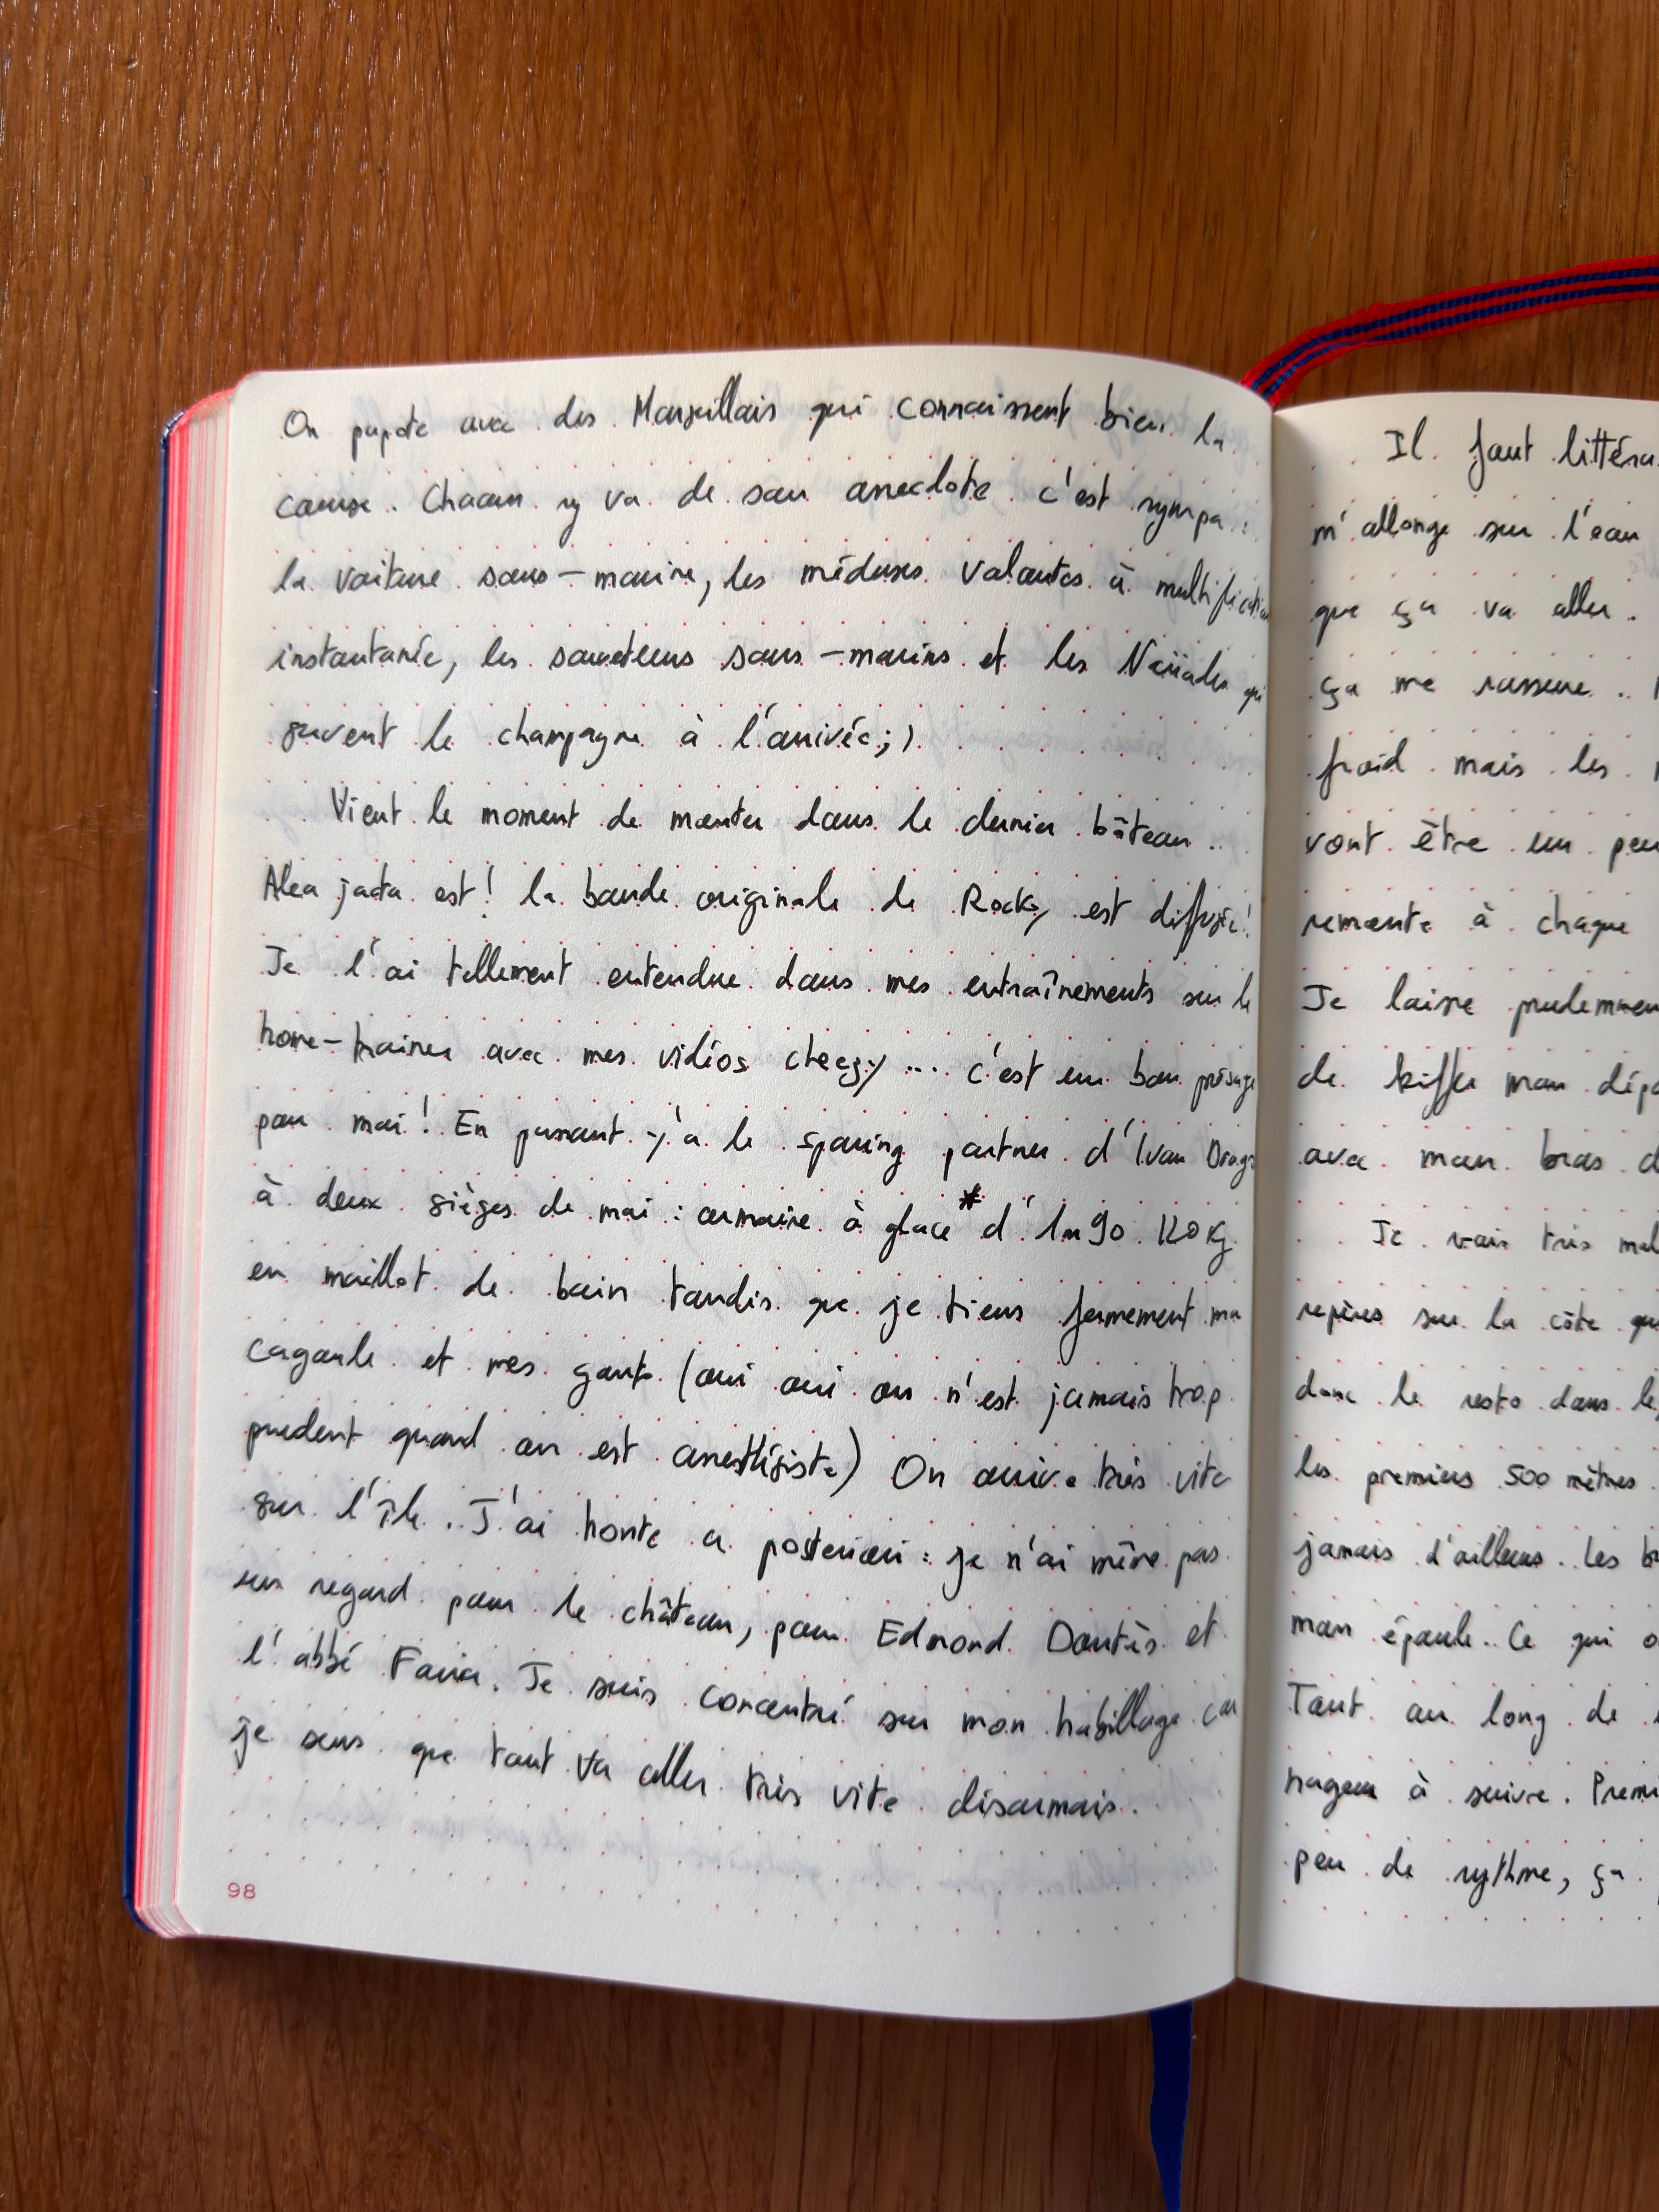 On papote avec des Marseillais qui connaissent bien la
course. Chacun y va de son anecdote c'est sympa :
la voiture sous-marine, les méduses volantes à multiplication
instantanée, les sauveteurs sous-marins et les Naïades qui
servent le champagne à l'arrivée ;)
Vient le moment de monter dans le dernier bâteau ..
Alea jacta est ! la bande originale de Rocky est diffusée !
Je l'ai tellement entendue dans mes entraînements sur le
home-trainer avec mes vidéos cheesy .... c'est un bon présage
pour moi ! En passant y'a le sparing partner d'Ivan Drago
à deux sièges de moi : armoire à glace* d'1m90 120 kg
en maillot de bain tandis que je tiens fermement ma
cagoule et mes gants (oui oui on n'est jamais trop
prudent quand on est anesthésiste) On arrive très vite
sur l'île. J'ai honte a posteriori : je n'ai même pas
un regard pour le château, pour Edmond Dantès et
l'abbé Faria. Je suis concentré sur mon habillage car
je sens que tout va aller très vite désormais.
98
Il faut littéra
m'allonge sur l'eau
que ça va aller.
ça me rassure ..
froid mais les
vont être un peu
remonte à chaque
Je laisse prudemmen
de kiffer mon dépa
avec mon bras d
Je vais très mal
repères sur la côte qu
donc le reste dans le
les premiers 500 mètres
jamais d'ailleurs. Les br
mon épaule. Ce qui o
Tout au long de
nageur à suivre. Premi
peu de rythme, ça